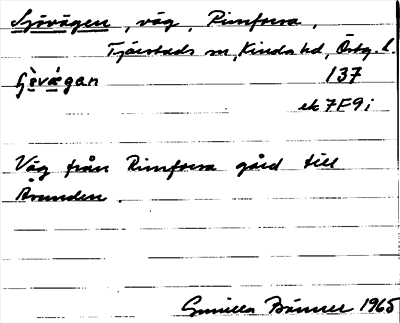 Sjövägen, väg, Rimforsa,
Tjärstads sn, Kinda hd, Östg. l.
137
ek 7F9i
Väg från Rimforsa gård till
Åsunden.
Gunilla 1965